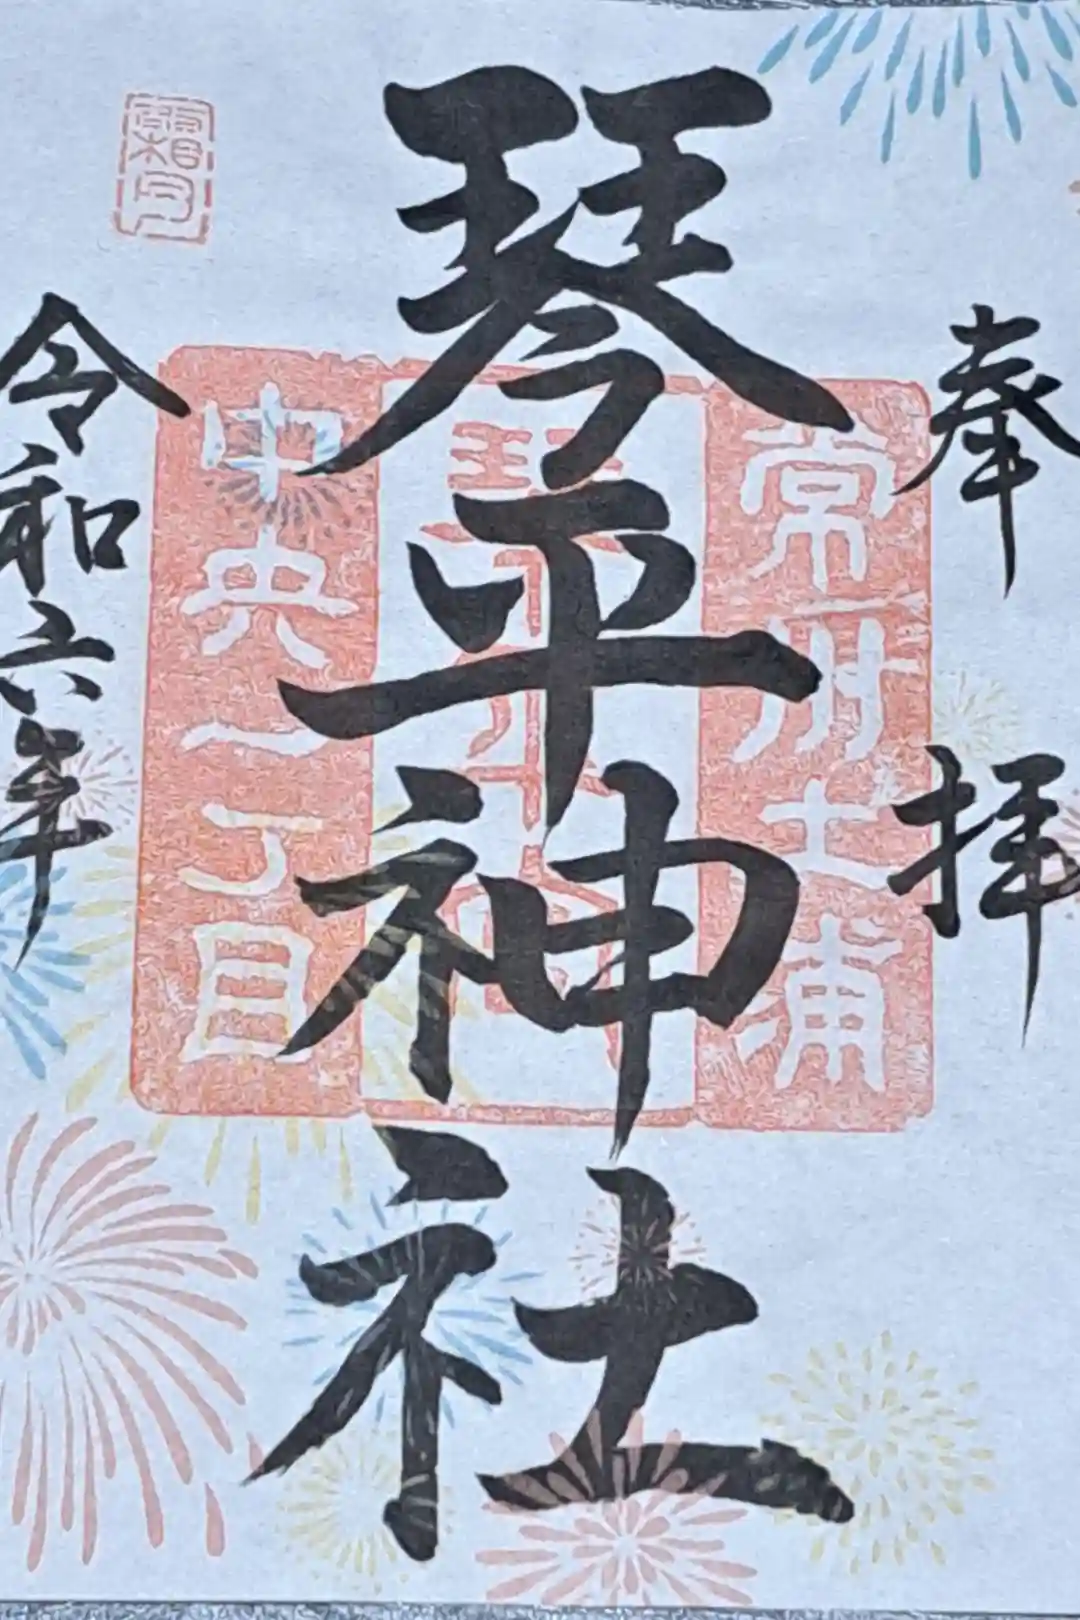 奉拝
常州土浦
琴平神社
琴平神社
中央一丁目
霜月
令和六年